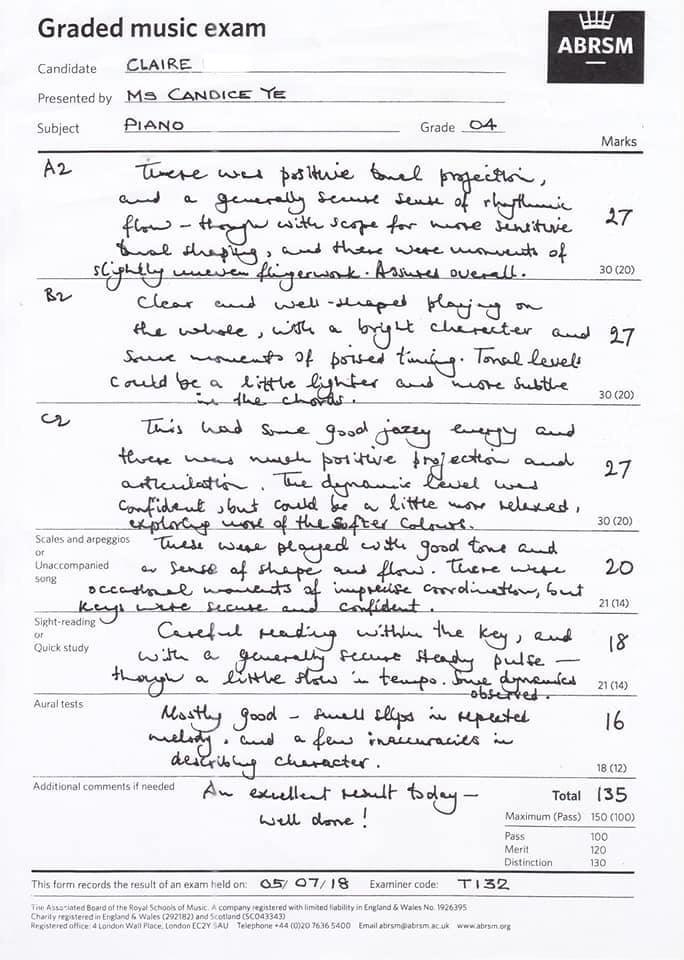 Graded music exam
ABRSM
Candidate CLAIRE
Presented by Ms CANDICE YE
Subject PIANO Grade 04
Marks
A2 There was positive tonal projection,
and a generally secure sense of rhythmic
flow – though with scope for more sensitive
tonal shaping, and there were moments of
slightly uneven fingerwork. Assured overall.
27
30 (20)
B2 Clear and well-shaped playing on
the whole, with a bright character and
some moments of poised timing. Tonal levels
could be a little lighter and more subtle
in the chords.
27
30 (20)
C2 This had some good jazzy energy and
there was much positive projection and
articulation. The dynamic level was
confident, but could be a little more relaxed,
exploring more of the softer colours.
27
30 (20)
Scales and arpeggios
or
Unaccompanied
song
These were played with good tone and
a sense of shape and flow. There were
occasional moments of imprecise coordination, but
keys were secure and confident.
20
21 (14)
Sight-reading
or
Quick study
Careful reading within the key, and
with a generally secure steady pulse –
though a little slow in tempo. Some dynamics
observed.
18
21 (14)
Aural tests
Mostly good – small slips in repeated
melody. and a few inaccuracies in
describing character.
16
18 (12)
Additional comments if needed
An excellent result today –
well done!
Total 135
Maximum (Pass) 150 (100)
Pass 100
Merit 120
Distinction 130
This form records the result of an exam held on: 05/07/18 Examiner code: T132
The Associated Board of the Royal Schools of Music. A company registered with limited liability in England & Wales No. 1926395
Charity registered in England & Wales (292182) and Scotland (SC043343)
Registered office: 4 London Wall Place, London EC2Y 5AU Telephone +44 (0)20 7636 5400 Email abrsm@abrsm.ac.uk www.abrsm.org